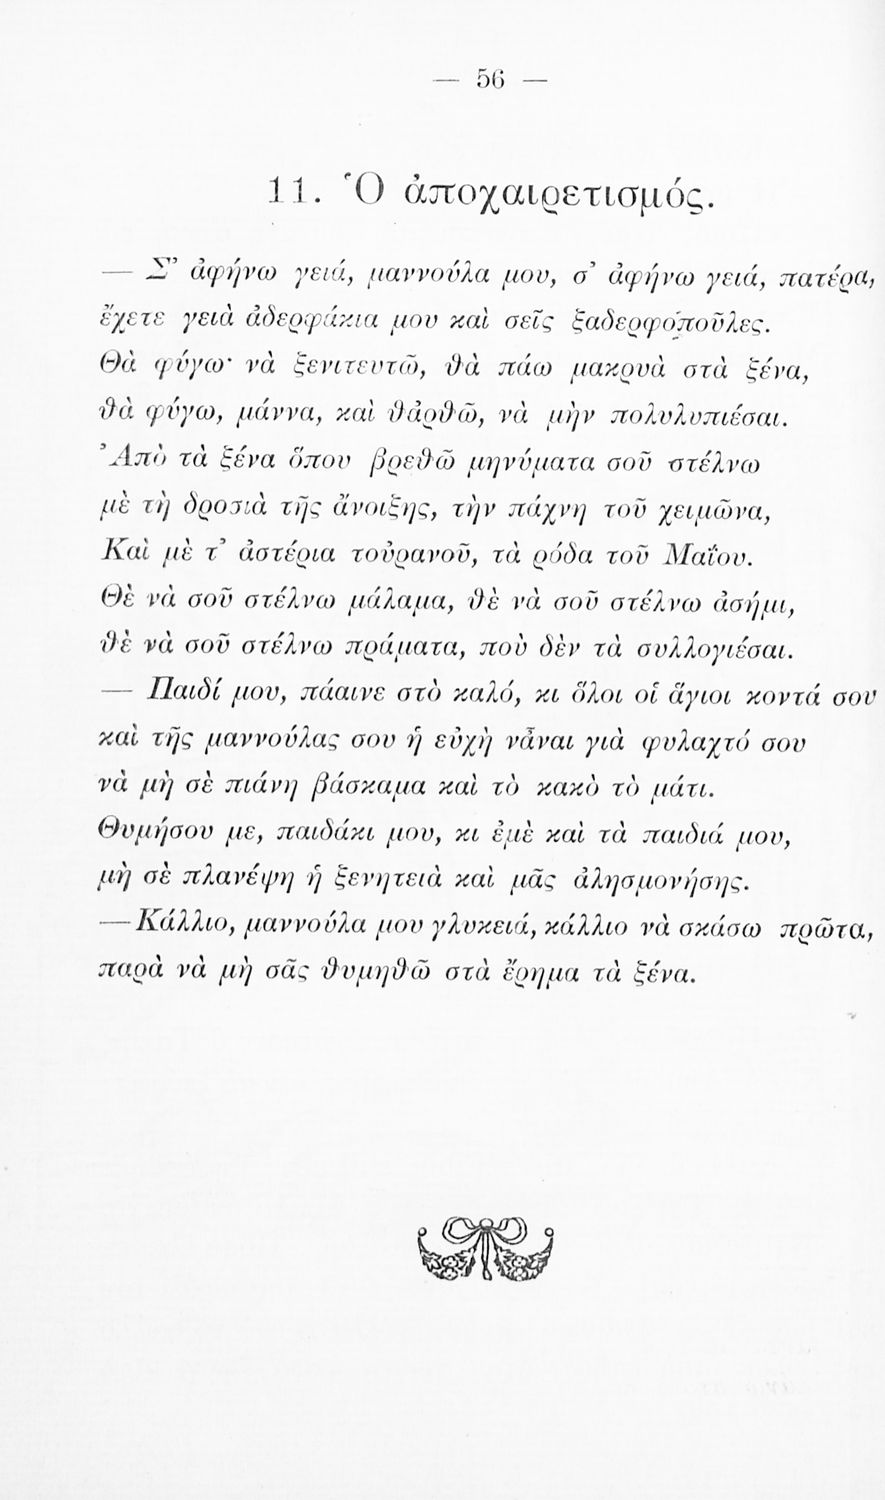 — 56 —
11. Ὁ ἀποχαιρετισμός.
— Σ’ ἀφήνω γειά, μαννούλα μου, σ’ ἀφήνω γειά, πατέρα,
ἔχετε γειὰ ἀδερφάκια μου καὶ σεῖς ξαδερφοποῦλες.
Θὰ φύγω· νὰ ξενιτευτῶ, θὰ πάω μακρυὰ στὰ ξένα,
θὰ φύγω, μάννα, καὶ θἀρθῶ, νὰ μὴν πολυλυπιέσαι.
Ἀπὸ τὰ ξένα ὅπου βρεθῶ μηνύματα σοῦ στέλνω
μὲ τὴ δροσιὰ τῆς ἄνοιξης, τὴν πάχνη τοῦ χειμῶνα,
Καὶ μὲ τ’ ἀστέρια τοὐρανοῦ, τὰ ρόδα τοῦ Μαΐου.
Θὲ νὰ σοῦ στέλνω μάλαμα, θὲ νὰ σοῦ στέλνω ἀσήμι,
θὲ νὰ σοῦ στέλνω πράματα, ποὺ δὲν τὰ συλλογιέσαι.
— Παιδί μου, πάαινε στὸ καλό, κι ὅλοι οἱ ἅγιοι κοντά σου
καὶ τῆς μαννούλας σου ἡ εὐχὴ νἆναι γιὰ φυλαχτό σου
νὰ μὴ σὲ πιάνη βάσκαμα καὶ τὸ κακὸ τὸ μάτι.
Θυμήσου με, παιδάκι μου, κι ἐμὲ καὶ τὰ παιδιά μου,
μὴ σὲ πλανέψη ἡ ξενητειὰ καὶ μᾶς ἀλησμονήσης.
— Κάλλιο, μαννούλα μου γλυκειά, κάλλιο νὰ σκάσω πρῶτα,
παρὰ νὰ μὴ σᾶς θυμηθῶ στὰ ἔρημα τὰ ξένα.